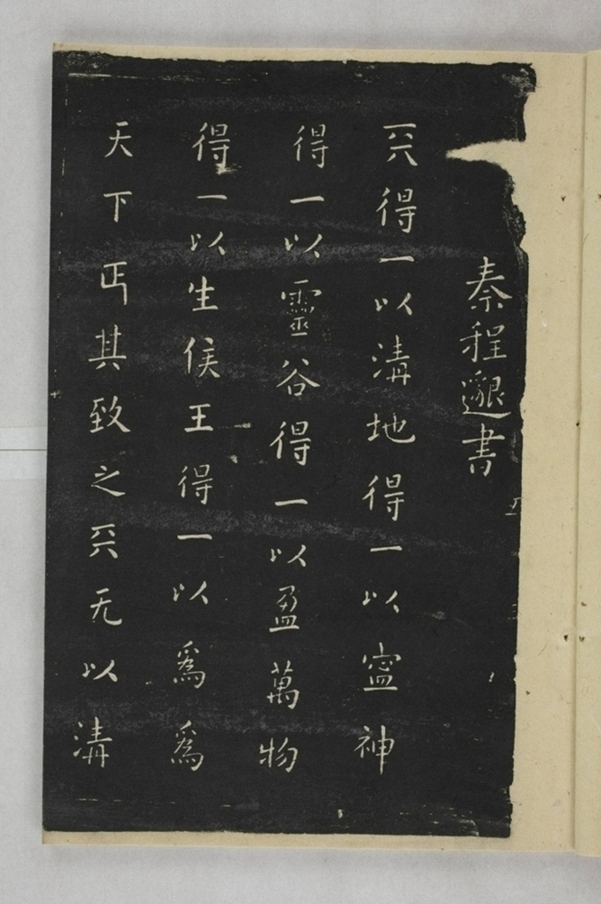 秦程邈書
兲得一以清地得一以寍神
得一以靈谷得一以盈萬物
得一以生侯王得一以爲爲
天下正其致之兲无以清